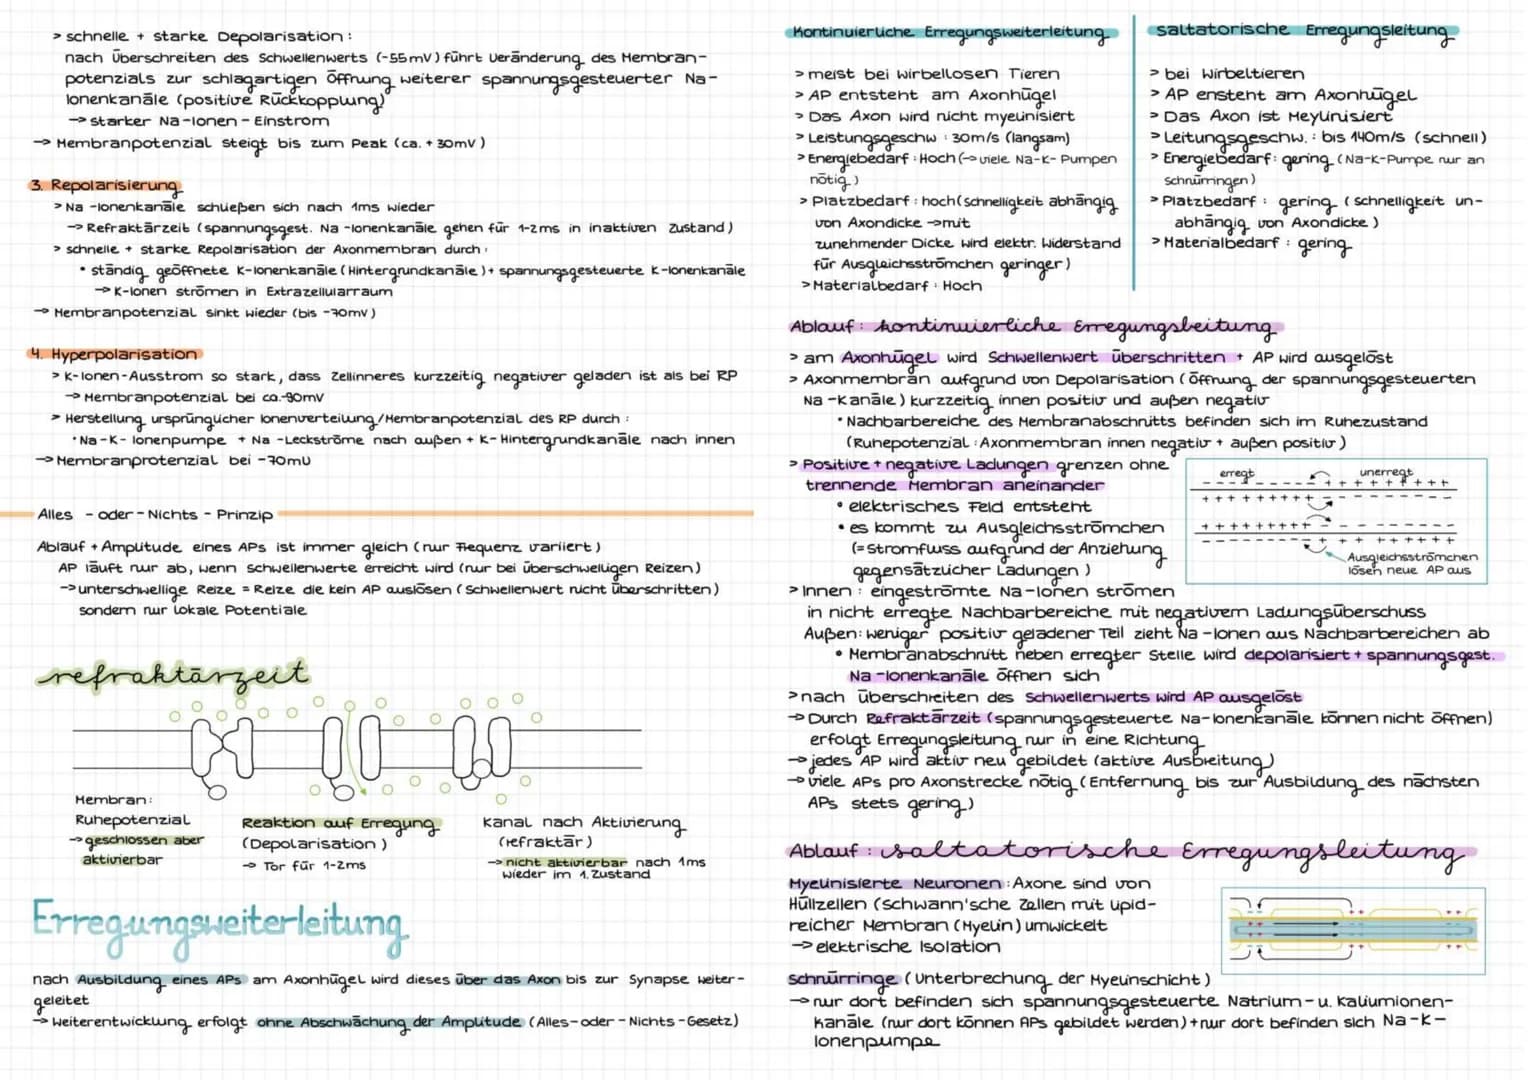 > schnelle + starke Depolarisation :
nach Überschreiten des Schwellenwerts (-55mV) führt Veränderung des Membran-
potenzials zur schlagartigen Öffnung weiterer spannungsgesteuerter Na-
Ionenkanäle (positive Rückkopplung)
→ starker Na-Ionen-Einstrom
→ Membranpotenzial steigt bis zum Peak (ca. +30mV)
3. Repolarisierung
> Na-Ionenkanäle schließen sich nach 1ms wieder
→ Refraktärzeit (spannungsgest. Na-Ionenkanäle gehen für 1-2ms in inaktiven Zustand)
> schnelle + starke Repolarisation der Axonmembran durch :
• ständig geöffnete K-Ionenkanäle (Hintergrundkanäle) + spannungsgesteuerte K-Ionenkanäle
→ K-Ionen strömen in Extrazellularraum
→ Membranpotenzial sinkt wieder (bis -70mV)
4. Hyperpolarisation
> K-Ionen-Ausstrom so stark, dass Zellinneres kurzzeitig negativer geladen ist als bei RP
→ Membranpotenzial bei ca.-90mV
> Herstellung ursprünglicher Ionenverteilung/Membranpotenzial des RP durch :
• Na-K-Ionenpumpe + Na-Leckströme nach außen + K-Hintergrundkanäle nach innen
→ Membranprotenzial bei -70mV
Alles - oder - Nichts - Prinzip
Ablauf + Amplitude eines APs ist immer gleich (nur Frequenz variiert)
AP läuft nur ab, wenn Schwellenwerte erreicht wird (nur bei überschwelligen Reizen)
→ unterschwellige Reize = Reize die kein AP auslösen (Schwellenwert nicht überschritten)
sondern nur lokale Potentiale
refraktärzeit
Membran:
Ruhepotenzial
→ geschlossen aber
aktivierbar
Reaktion auf Erregung
(Depolarisation)
→ Tor für 1-2ms
Kanal nach Aktivierung
(refraktär)
→ nicht aktivierbar nach 1ms
wieder im 1. Zustand
Erregungsweiterleitung
nach Ausbildung eines APs am Axonhügel wird dieses über das Axon bis zur Synapse weiter-
geleitet
→ Weiterentwicklung erfolgt ohne Abschwächung der Amplitude (Alles-oder-Nichts-Gesetz)
Kontinuierliche Erregungsweiterleitung
> meist bei wirbellosen Tieren
> AP entsteht am Axonhügel
> Das Axon wird nicht myelinisiert
> Leistungsgeschw : 30m/s (langsam)
> Energiebedarf : Hoch (→ viele Na-K-Pumpen
nötig)
> Platzbedarf : hoch (Schnelligkeit abhängig
von Axondicke → mit
zunehmender Dicke wird elektr. Widerstand
für Ausgleichsströmchen geringer)
> Materialbedarf : Hoch
saltatorische Erregungsleitung
> bei Wirbeltieren
> AP ensteht am Axonhügel
> Das Axon ist Meylinisiert
> Leitungsgeschw. : bis 140m/s (schnell)
> Energiebedarf: gering (Na-K-Pumpe nur an
schnürringen)
> Platzbedarf : gering (schnelligkeit un-
abhängig von Axondicke)
> Materialbedarf : gering
Ablauf : kontinuierliche Erregungsleitung
> am Axonhügel wird Schwellenwert überschritten + AP wird ausgelöst
> Axonmembran aufgrund von Depolarisation (Öffnung der spannungsgesteuerten
Na-Kanäle) kurzzeitig innen positiv und außen negativ
• Nachbarbereiche des Membranabschnitts befinden sich im Ruhezustand
(Ruhepotenzial : Axonmembran innen negativ + außen positiv)
> Positive + negative Ladungen grenzen ohne
trennende Membran aneinander
• elektrisches Feld entsteht
• es kommt zu Ausgleichsströmchen
(=Stromfuss aufgrund der Anziehung
gegensätzlicher Ladungen)
erregt unerregt
- - - - - - - - - + + + + + + + + +
+ + + + + + + + + - - - - - - - -
+ + + + + + + + + - - - - - - - -
- - - - - - - - - + + + + + + + +
Ausgleichsströmchen
lösen neue AP aus
> Innen : eingeströmte Na-Ionen strömen
in nicht erregte Nachbarbereiche mit negativem Ladungsüberschuss
Außen: weniger positiv geladener Teil zieht Na-Ionen aus Nachbarbereichen ab
• Membranabschnitt neben erregter Stelle wird depolarisiert + spannungsgest.
Na-Ionenkanäle öffnen sich
> nach überschreiten des Schwellenwerts wird AP ausgelöst
→ Durch Refraktärzeit (spannungsgesteuerte Na-Ionenkanäle können nicht öffnen)
erfolgt Erregungsleitung nur in eine Richtung
→ jedes AP wird aktiv neu gebildet (aktive Ausbreitung)
→ viele APs pro Axonstrecke nötig (Entfernung bis zur Ausbildung des nächsten
APs stets gering)
Ablauf : saltatorische Erregungsleitung
Myelinisierte Neuronen : Axone sind von
Hüllzellen (Schwann'sche Zellen mit lipid-
reicher Membran (Myelin) umwickelt
→ elektrische Isolation
schnürringe (Unterbrechung der Myelinschicht)
→ nur dort befinden sich spannungsgesteuerte Natrium- u. Kaliumionen-
kanäle (nur dort können APs gebildet werden) + nur dort befinden sich Na-K-
Ionenpumpe